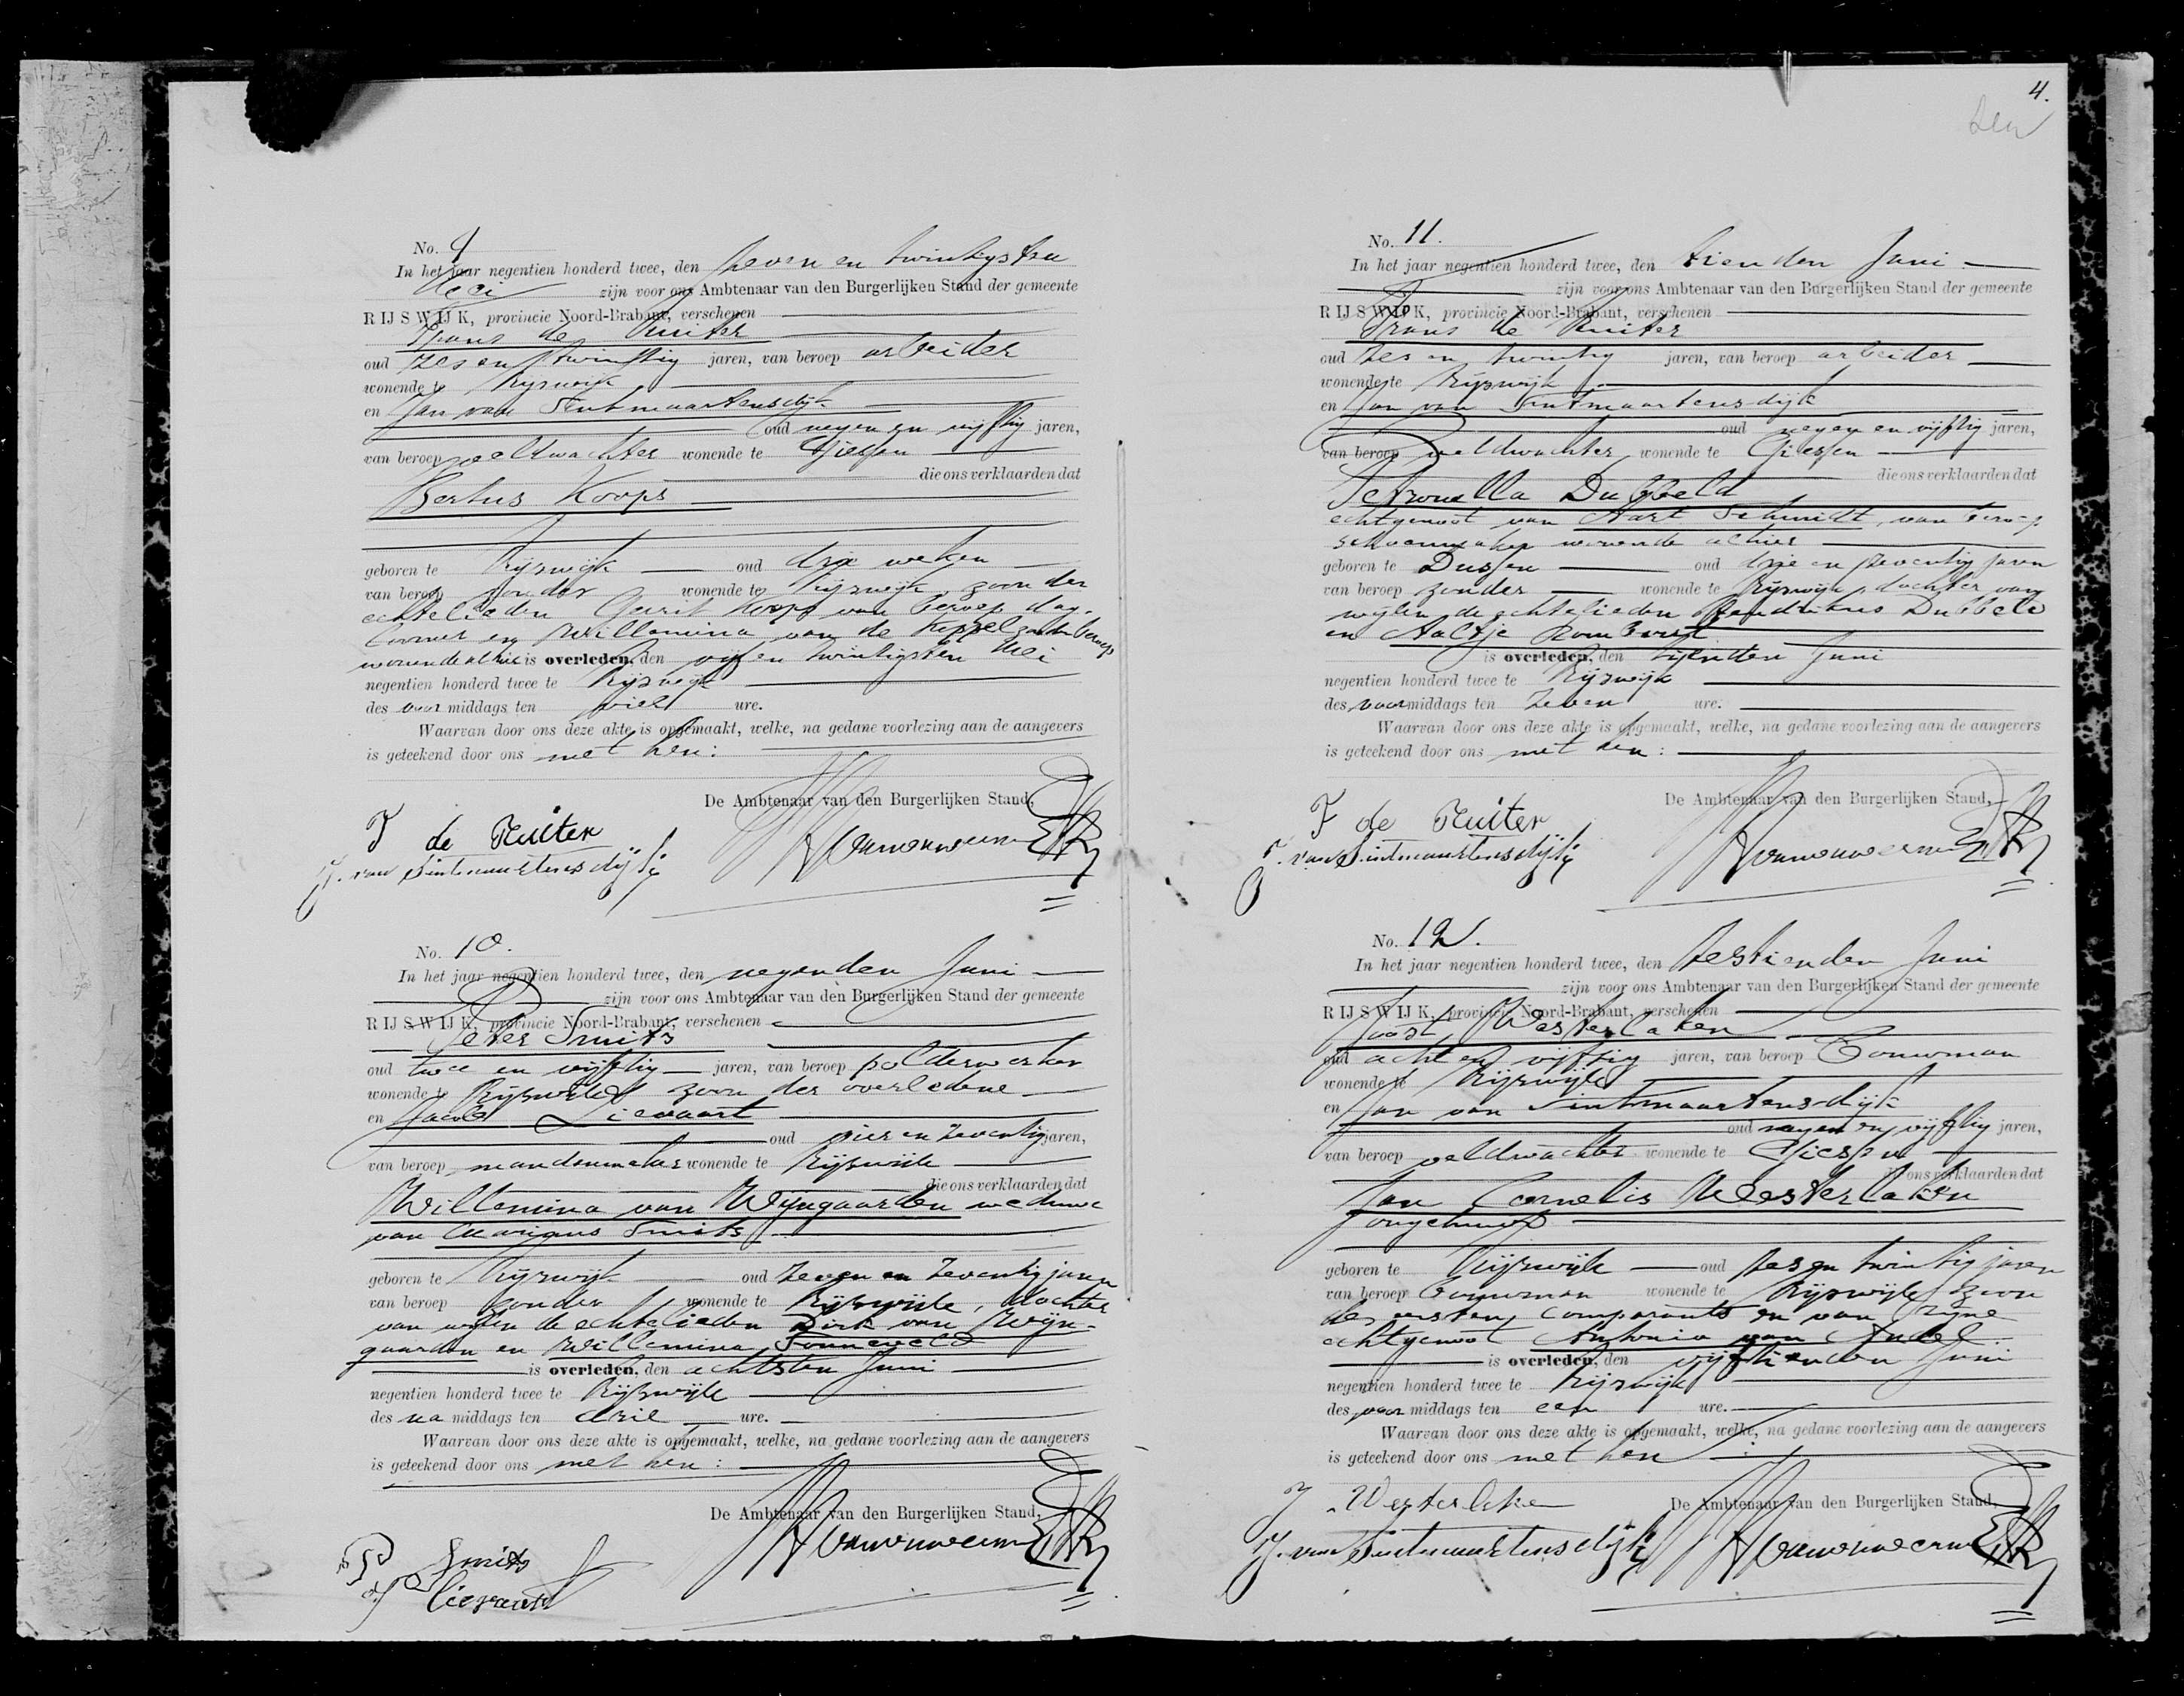 4.
No. 9
In het jaar negentien honderd twee, den zeven en twintigsten
Mei zijn voor ons Ambtenaar van den Burgerlijken Stand der gemeente
RIJSWIJK, provincie Noord-Brabant, verschenen
Frans de Ruiter
oud zes en twintig jaren, van beroep arbeider
wonende te Rijswijk
en Jan van Sintmaartensdijk
oud negen en vijftig jaren,
van beroep veldwachter wonende te Giessen
die ons verklaarden dat
Bertus Koops
geboren te Rijswijk oud drie weken
van beroep zonder wonende te Rijswijk, zoon der
echtelieden Gerit Koops van beroep dag-
looner en Willemina van de Koppel zonder beroep
wonende alhier is overleden, den vijf en twintigsten Mei
negentien honderd twee te Rijswijk
des voormiddags ten vier ure.
Waarvan door ons deze akte is opgemaakt, welke, na gedane voorlezing aan de aangevers
is geteekend door ons met hen:
De Ambtenaar van den Burgerlijken Stand,
F de Ruiter
J. van Sintmaartensdijk
No. 10.
In het jaar negentien honderd twee, den negenden Juni
zijn voor ons Ambtenaar van den Burgerlijken Stand der gemeente
RIJSWIJK, provincie Noord-Brabant, verschenen
Peter Smits
oud twee en vijftig jaren, van beroep polderwerker
wonende te Rijswijk zoon der overledene
en Jacob Lievaart
oud vier en zeventig jaren,
van beroep mandenmaker wonende te Rijswijk
die ons verklaarden dat
Willemina van Wijngaarden weduwe
van Marinus Smits
geboren te Rijswijk oud zeven en zeventig jaren
van beroep zonder wonende te Rijswijk, dochter
van wijlen de echtelieden Dirk van Wijn-
gaarden en Willemina Sonneveld
is overleden, den achtsten Juni
negentien honderd twee te Rijswijk
des na middags ten drie ure.
Waarvan door ons deze akte is opgemaakt, welke, na gedane voorlezing aan de aangevers
is geteekend door ons met hen:
De Ambtenaar van den Burgerlijken Stand,
P Smits
J Lievaart
No. 11.
In het jaar negentien honderd twee, den tienden Juni
zijn voor ons Ambtenaar van den Burgerlijken Stand der gemeente
RIJSWIJK, provincie Noord-Brabant, verschenen
Frans de Ruiter
oud zes en twintig jaren, van beroep arbeider
wonende te Rijswijk
en Jan van Sintmaartensdijk
oud negen en vijftig jaren,
van beroep veldwachter wonende te Giessen
die ons verklaarden dat
Petronella Dubbeld
echtgenoot van Aart Schmidt, van beroep
schoenmaker wonende alhier
geboren te Dussen oud drie en zeventig jaren
van beroep zonder wonende te Rijswijk, dochter van
wijlen de echtelieden Hendrikus Dubbeld
en Aaltje Rombout
is overleden, den tienden Juni
negentien honderd twee te Rijswijk
des voormiddags ten zeven ure.
Waarvan door ons deze akte is opgemaakt, welke, na gedane voorlezing aan de aangevers
is geteekend door ons met hen:
De Ambtenaar van den Burgerlijken Stand,
F de Ruiter
J. van Sintmaartensdijk
No. 12.
In het jaar negentien honderd twee, den zestienden Juni
zijn voor ons Ambtenaar van den Burgerlijken Stand der gemeente
RIJSWIJK, provincie Noord-Brabant, verschenen
Joost Westerlaken
oud acht en vijftig jaren, van beroep Bouwman
wonende te Rijswijk
en Jan van Sintmaartensdijk
oud negen en vijftig jaren,
van beroep veldwachter wonende te Giessen
die ons verklaarden dat
Jan Cornelis Westerlaken
jongeman
geboren te Rijswijk oud zes en twintig jaren
van beroep Bouwman wonende te Rijswijk zoon
des eersten comparants en van zijne
echtgenoot Antonia van Andel
is overleden, den vijftienden Juni
negentien honderd twee te Rijswijk
des voor middags ten een ure.
Waarvan door ons deze akte is opgemaakt, welke, na gedane voorlezing aan de aangevers
is geteekend door ons met hen:
De Ambtenaar van den Burgerlijken Stand,
J. Westerlaken
J. van Sintmaartensdijk